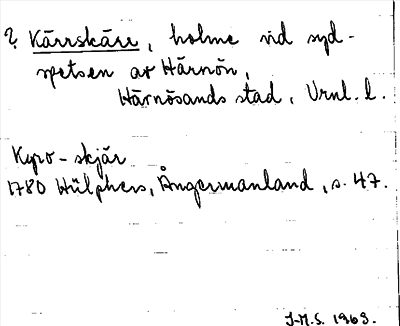 ? Kärrskäre, holme vid syd-
spetsen av Härnön,
Härnösands stad, Vrnl. l.
Kyro-skjär
1780 Hülphers, Ångermanland, s. 47.
J.M.S. 1963.